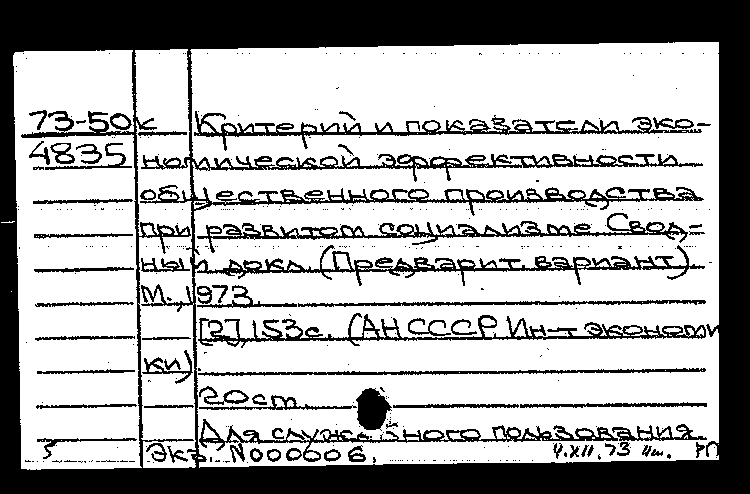 73-50к Критерий и показатели эко-
4835 номической эффективности
общественного производства
при развитом социализме. Свод-
ный докл. (Предварит. вариант)
М., 1973.
[2], 153 с. (АН СССР. Ин-т экономи
ки)
20 ст.
Для служебного пользования.
5 Экз. N000006. 4.XII.73
РП